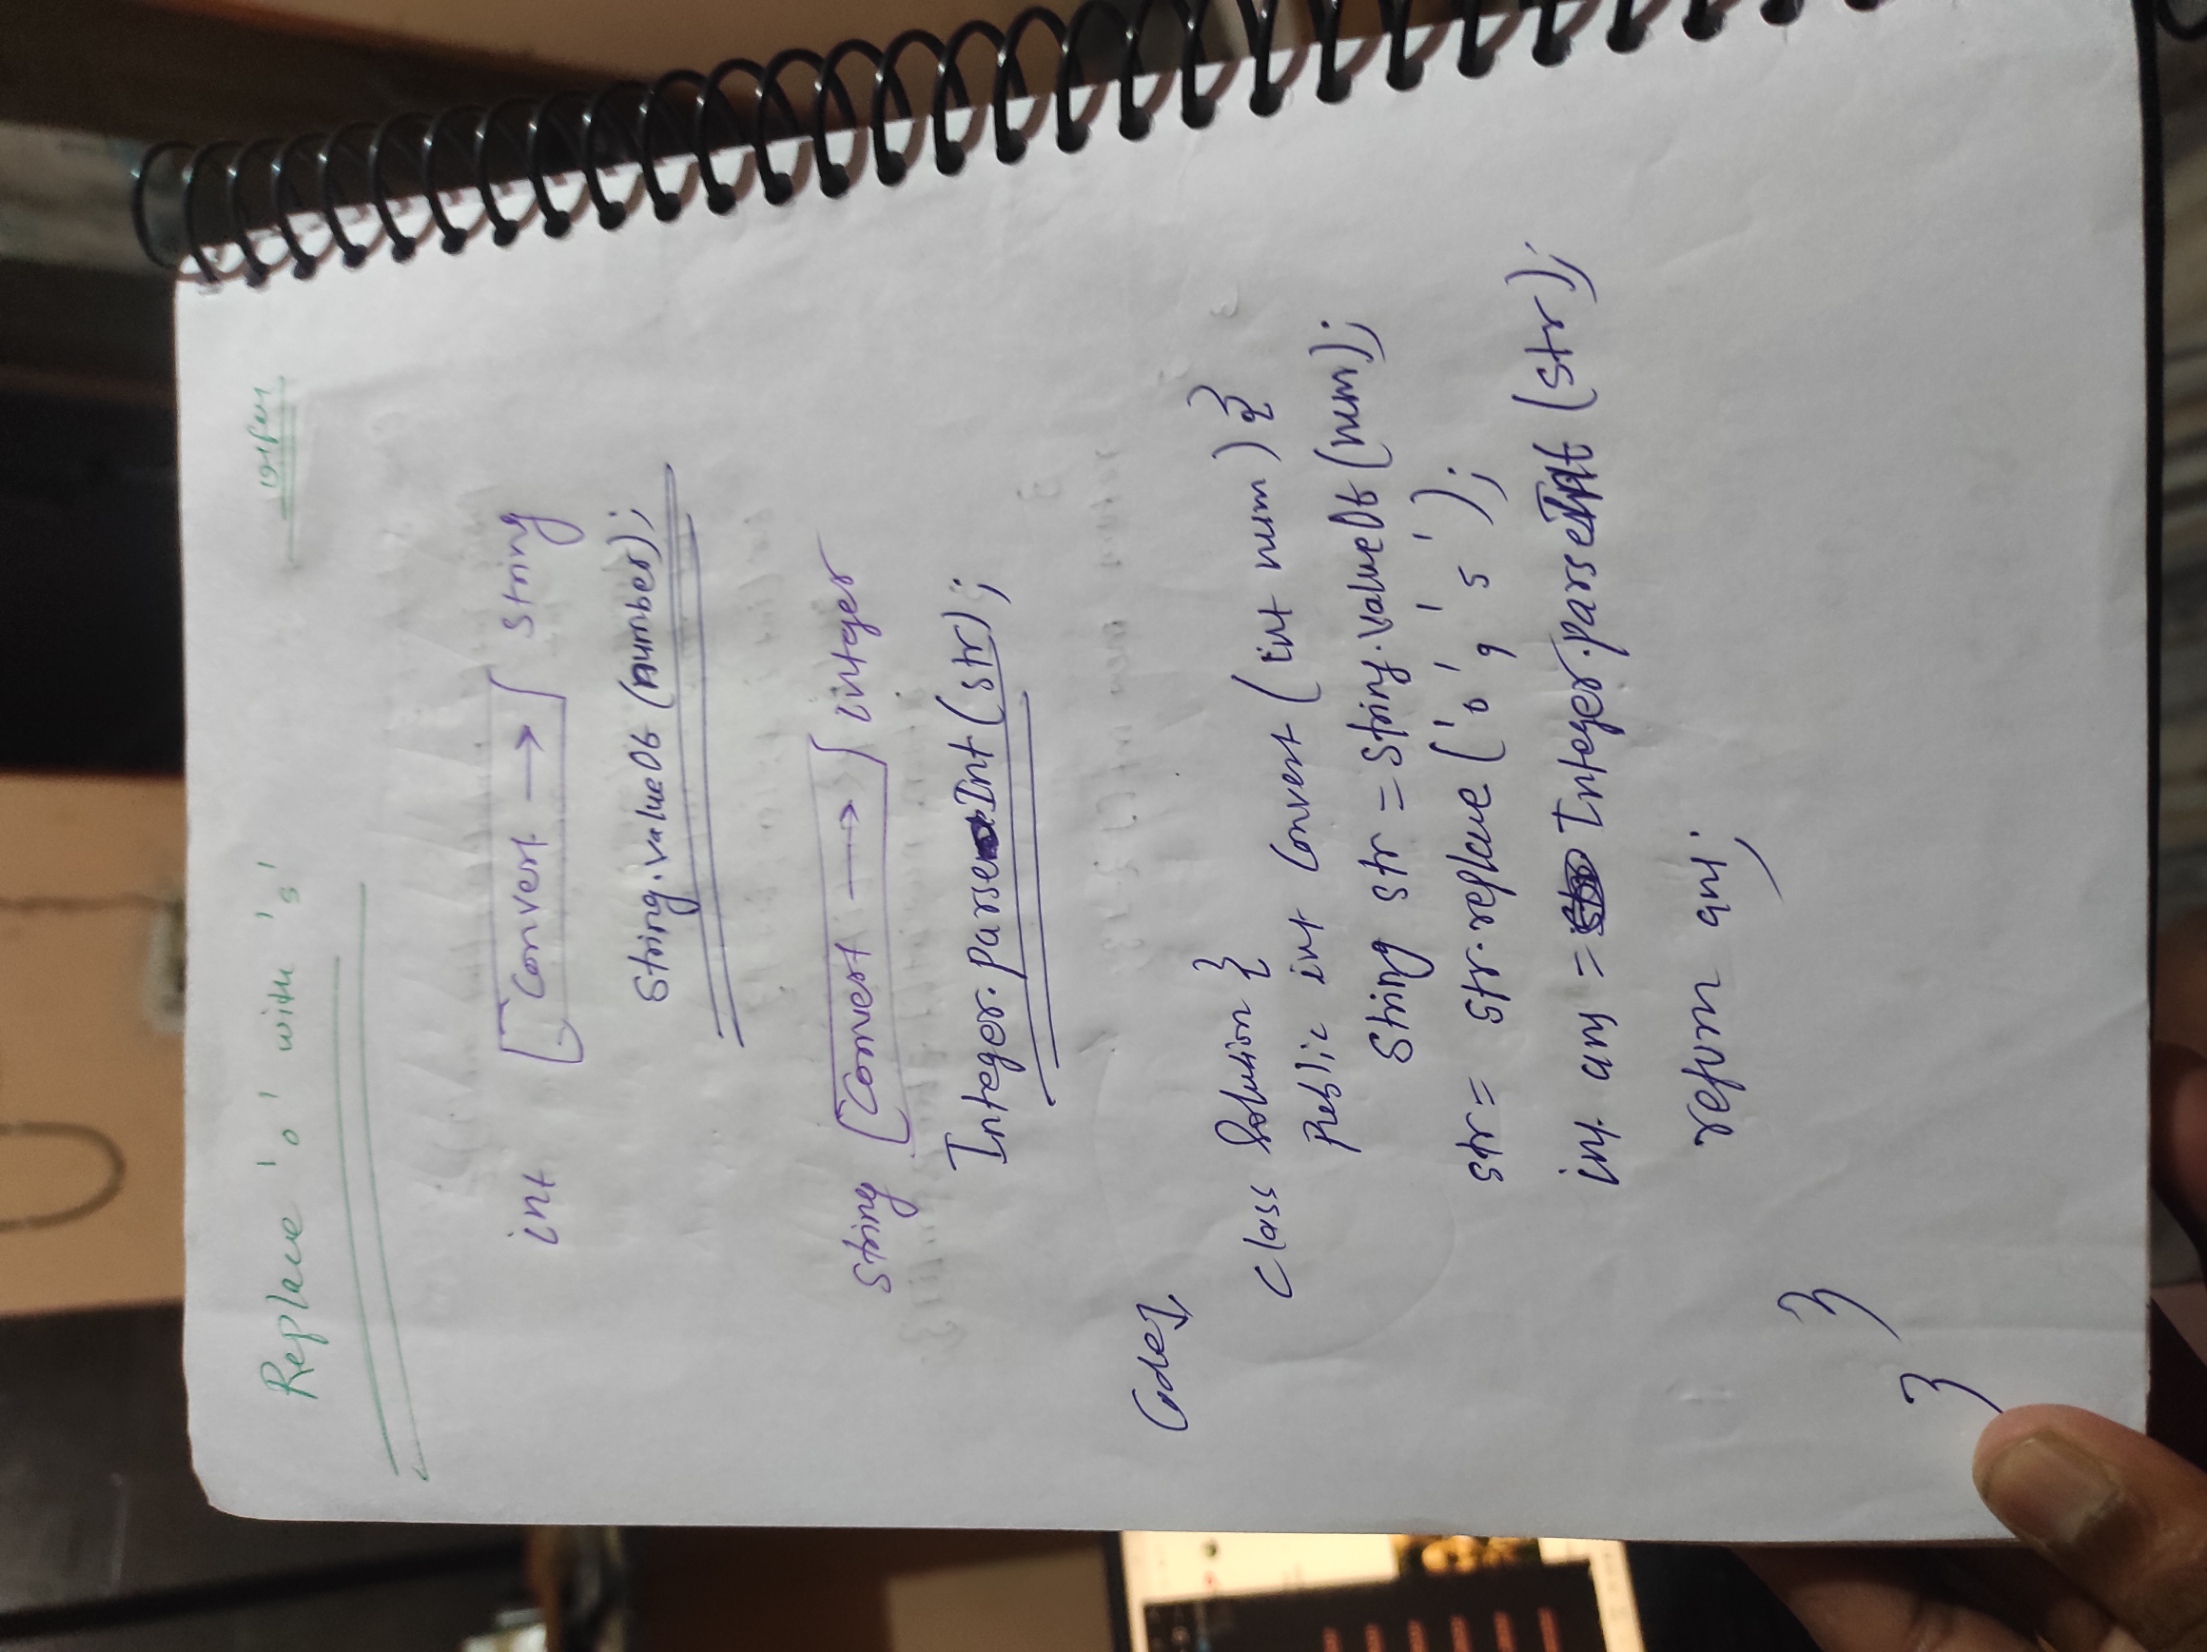 Replace '0' with '5'
int [Convert →] String
String.valueOf (number);
String [Convert →] integer
Integer.parseInt (str);
Code],
class Solution {
Public int Convert (int num) {
String str = String.valueOf (num);
str = str.replace ('0', '5');
int ans = Integer.parseInt (str);
return ans;
}
}